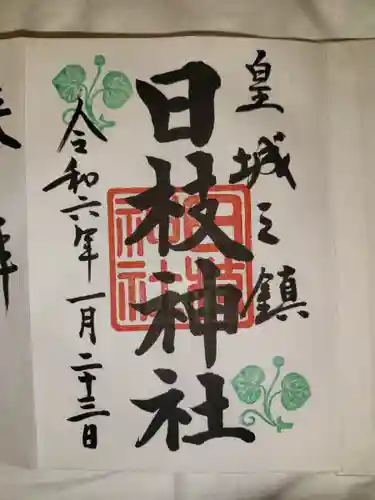 皇城之鎮
日枝神社
令和六年一月二十三日